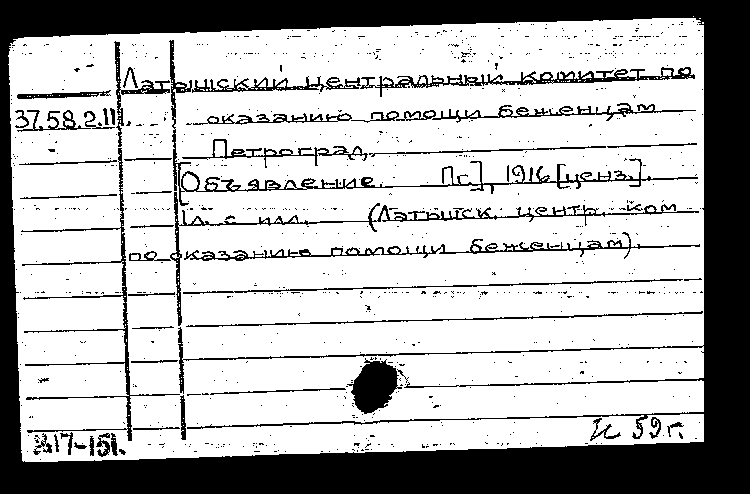 Латышский центральный комитет по
37.58.2.III. оказанию помощи беженцам
Петроград.
[Объявление. Пг.], 1916 [ценз.].
1л. с илл. (Латышск. центр. ком
по оказанию помощи беженцам).
17-151.
59 г.